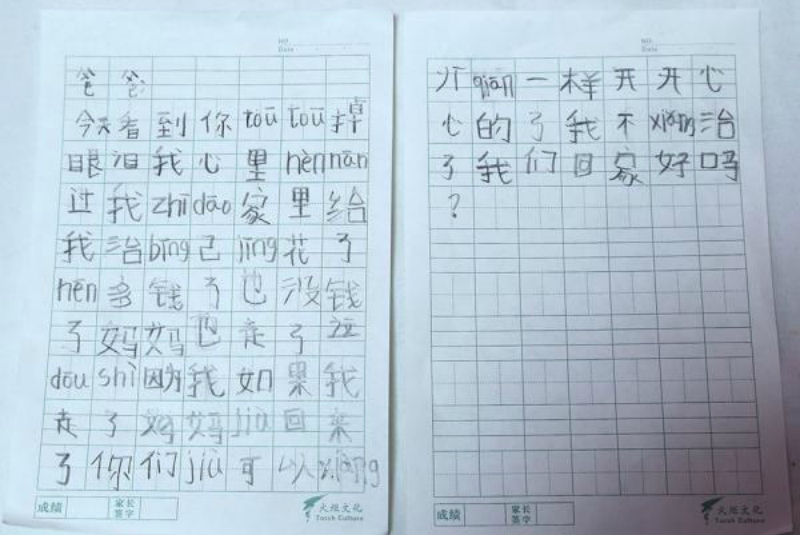 No.
Date
爸爸
今天看到你tōu tōu掉
眼泪我心里hěn nán
过我zhī dāo家里给
我治bìng己jīng花了
hěn多钱了也没钱
了妈妈也走了这
dōu shì因为我如果我
走了妈妈jiù回来
了你们jiù可以xiàng
成绩 家长签字 火炬文化
Torch Culture
No.
Date
以qián一样开开心
心的了我不xiǎng治
了我们回家好吗
？
成绩 家长签字 火炬文化
Torch Culture